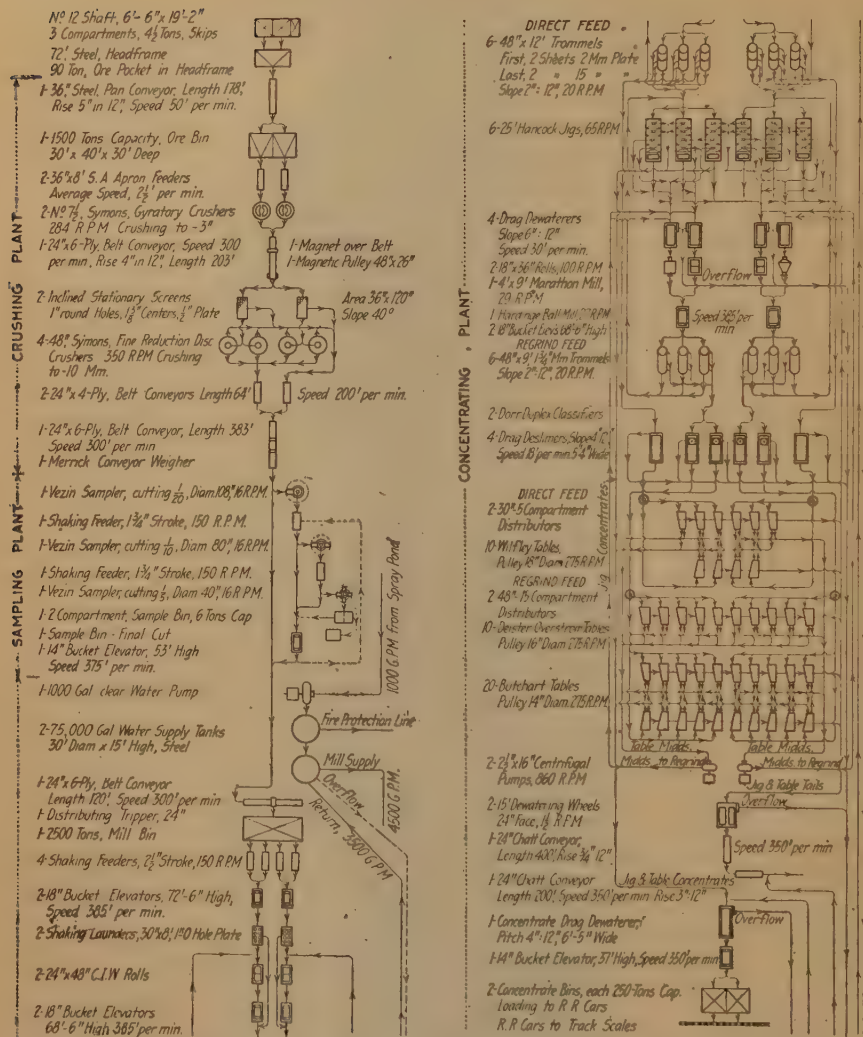 Nº 12 Shaft, 6'-6" x 19'-2"
3 Compartments, 4½ Tons, Skips
72', Steel, Headframe
90 Ton, Ore Pocket in Headframe
1-36", Steel, Pan Conveyor, Length 178',
Rise 5" in 12", Speed 50' per min.
1-1500 Tons Capacity, Ore Bin
30' x 40' x 30' Deep
2-36"x8' S.A Apron Feeders
Average Speed, 2½' per min.
2-Nº 7½, Symons, Gyratory Crushers
284 R P M Crushing to -3"
1-24"x 6-Ply, Belt Conveyor, Speed 300
per min, Rise 4" in 12", Length 203'
1-Magnet over Belt
1-Magnetic Pulley 48"x 26"
2-Inclined Stationary Screens
1" round Holes, 1⅜" Centers, ½" Plate
Area 36"x 120"
Slope 40°
4-48", Symons, Fine Reduction Disc
Crushers 350 RPM Crushing
to -10 Mm.
2-24"x 4-Ply, Belt Conveyors Length 64'
Speed 200' per min.
1-24"x 6-Ply, Belt Conveyor, Length 383'
Speed 300' per min
1-Merrick Conveyor Weigher
1-Vezin Sampler, cutting 1/20, Diam. 108", 16 R.P.M.
1-Shaking Feeder, 1¾" Stroke, 150 R.P.M.
1-Vezin Sampler, cutting 1/10, Diam 80", 16 R.P.M.
1-Shaking Feeder, 1¾" Stroke, 150 R.P.M.
1-Vezin Sampler, cutting ⅕, Diam 40", 16 R.P.M.
1-2 Compartment, Sample Bin, 6 Tons Cap
1-Sample Bin - Final Cut
1-14" Bucket Elevator, 53' High
Speed 375' per min.
1000 G.P.M from Spray Pond
1-1000 Gal clear Water Pump
Fire Protection Line
2-75,000 Gal Water Supply Tanks
30' Diam x 15' High, Steel
Mill Supply
Overflow
Return, 3500 G.P.M
4500 G.P.M.
1-24"x 6-Ply, Belt Conveyor
Length 120', Speed 300' per min
1-Distributing Tripper, 24"
1-2500 Tons, Mill Bin
4-Shaking Feeders, 2½" Stroke, 150 R.P.M
2-18" Bucket Elevators, 72'-6" High,
Speed 385' per min.
2-Shaking Launders, 30"x8', 1"O Hole Plate
2-24"x 48" C.I.W Rolls
2-18" Bucket Elevators
68'-6" High 385' per min.
SAMPLING PLANT
CRUSHING PLANT
CONCENTRATING PLANT
DIRECT FEED
6-48"x 12' Trommels
First, 2 Sheets 2 Mm Plate
Last, 2 " 15 " "
Slope 2":12", 20 R.P.M
6-25' Hancock Jigs, 65 R.P.M
4-Drag Dewaterers
Slope 6":12"
Speed 30' per min.
2-18"x 36" Rolls, 100 R.P.M
1-4'x 9' Marathon Mill,
29 R.P.M
1 Hardinge Ball Mill
2 18" Bucket Elev's 68'-6" High
REGRIND FEED
Overflow
Speed 365' per
min
6-48"x 9' 1¾ Mm Trommels
Slope 2":12", 20 R.P.M.
2-Dorr Duplex Classifiers
4-Drag Deslimers, Slope 4":12"
Speed 18' per min 5'4" Wide
Jig Concentrates
DIRECT FEED
2-30"-5 Compartment
Distributors
10-Wilfley Tables
Pulley 18" Diam 275 R.P.M
REGRIND FEED
2 48"-15 Compartment
Distributors
10-Deister Overstrom Tables
Pulley 16" Diam 275 R.P.M
20-Butchart Tables
Pulley 14" Diam. 275 R.P.M
Table Midds.
Table Midds.
Midds. to Regrind
Midds. to Regrind
2-2½"x 16" Centrifugal
Pumps, 860 R.P.M
Jig & Table Tails
Overflow
2-15' Dewatering Wheels
24" Face, 1½ R.P.M
1-24" Chatt Conveyor,
Length 400', Rise ¾":12"
Speed 350' per min
1-24" Chatt Conveyor
Jig & Table Concentrates
Length 200', Speed 350' per min Rise 3":12"
1-Concentrate Drag Dewaterer,
Pitch 4":12", 6'-5" Wide
Overflow
1-14" Bucket Elevator, 37' High, Speed 350' per min
2-Concentrate Bins, each 250-Tons Cap.
Loading to R R Cars
R.R Cars to Track Scales